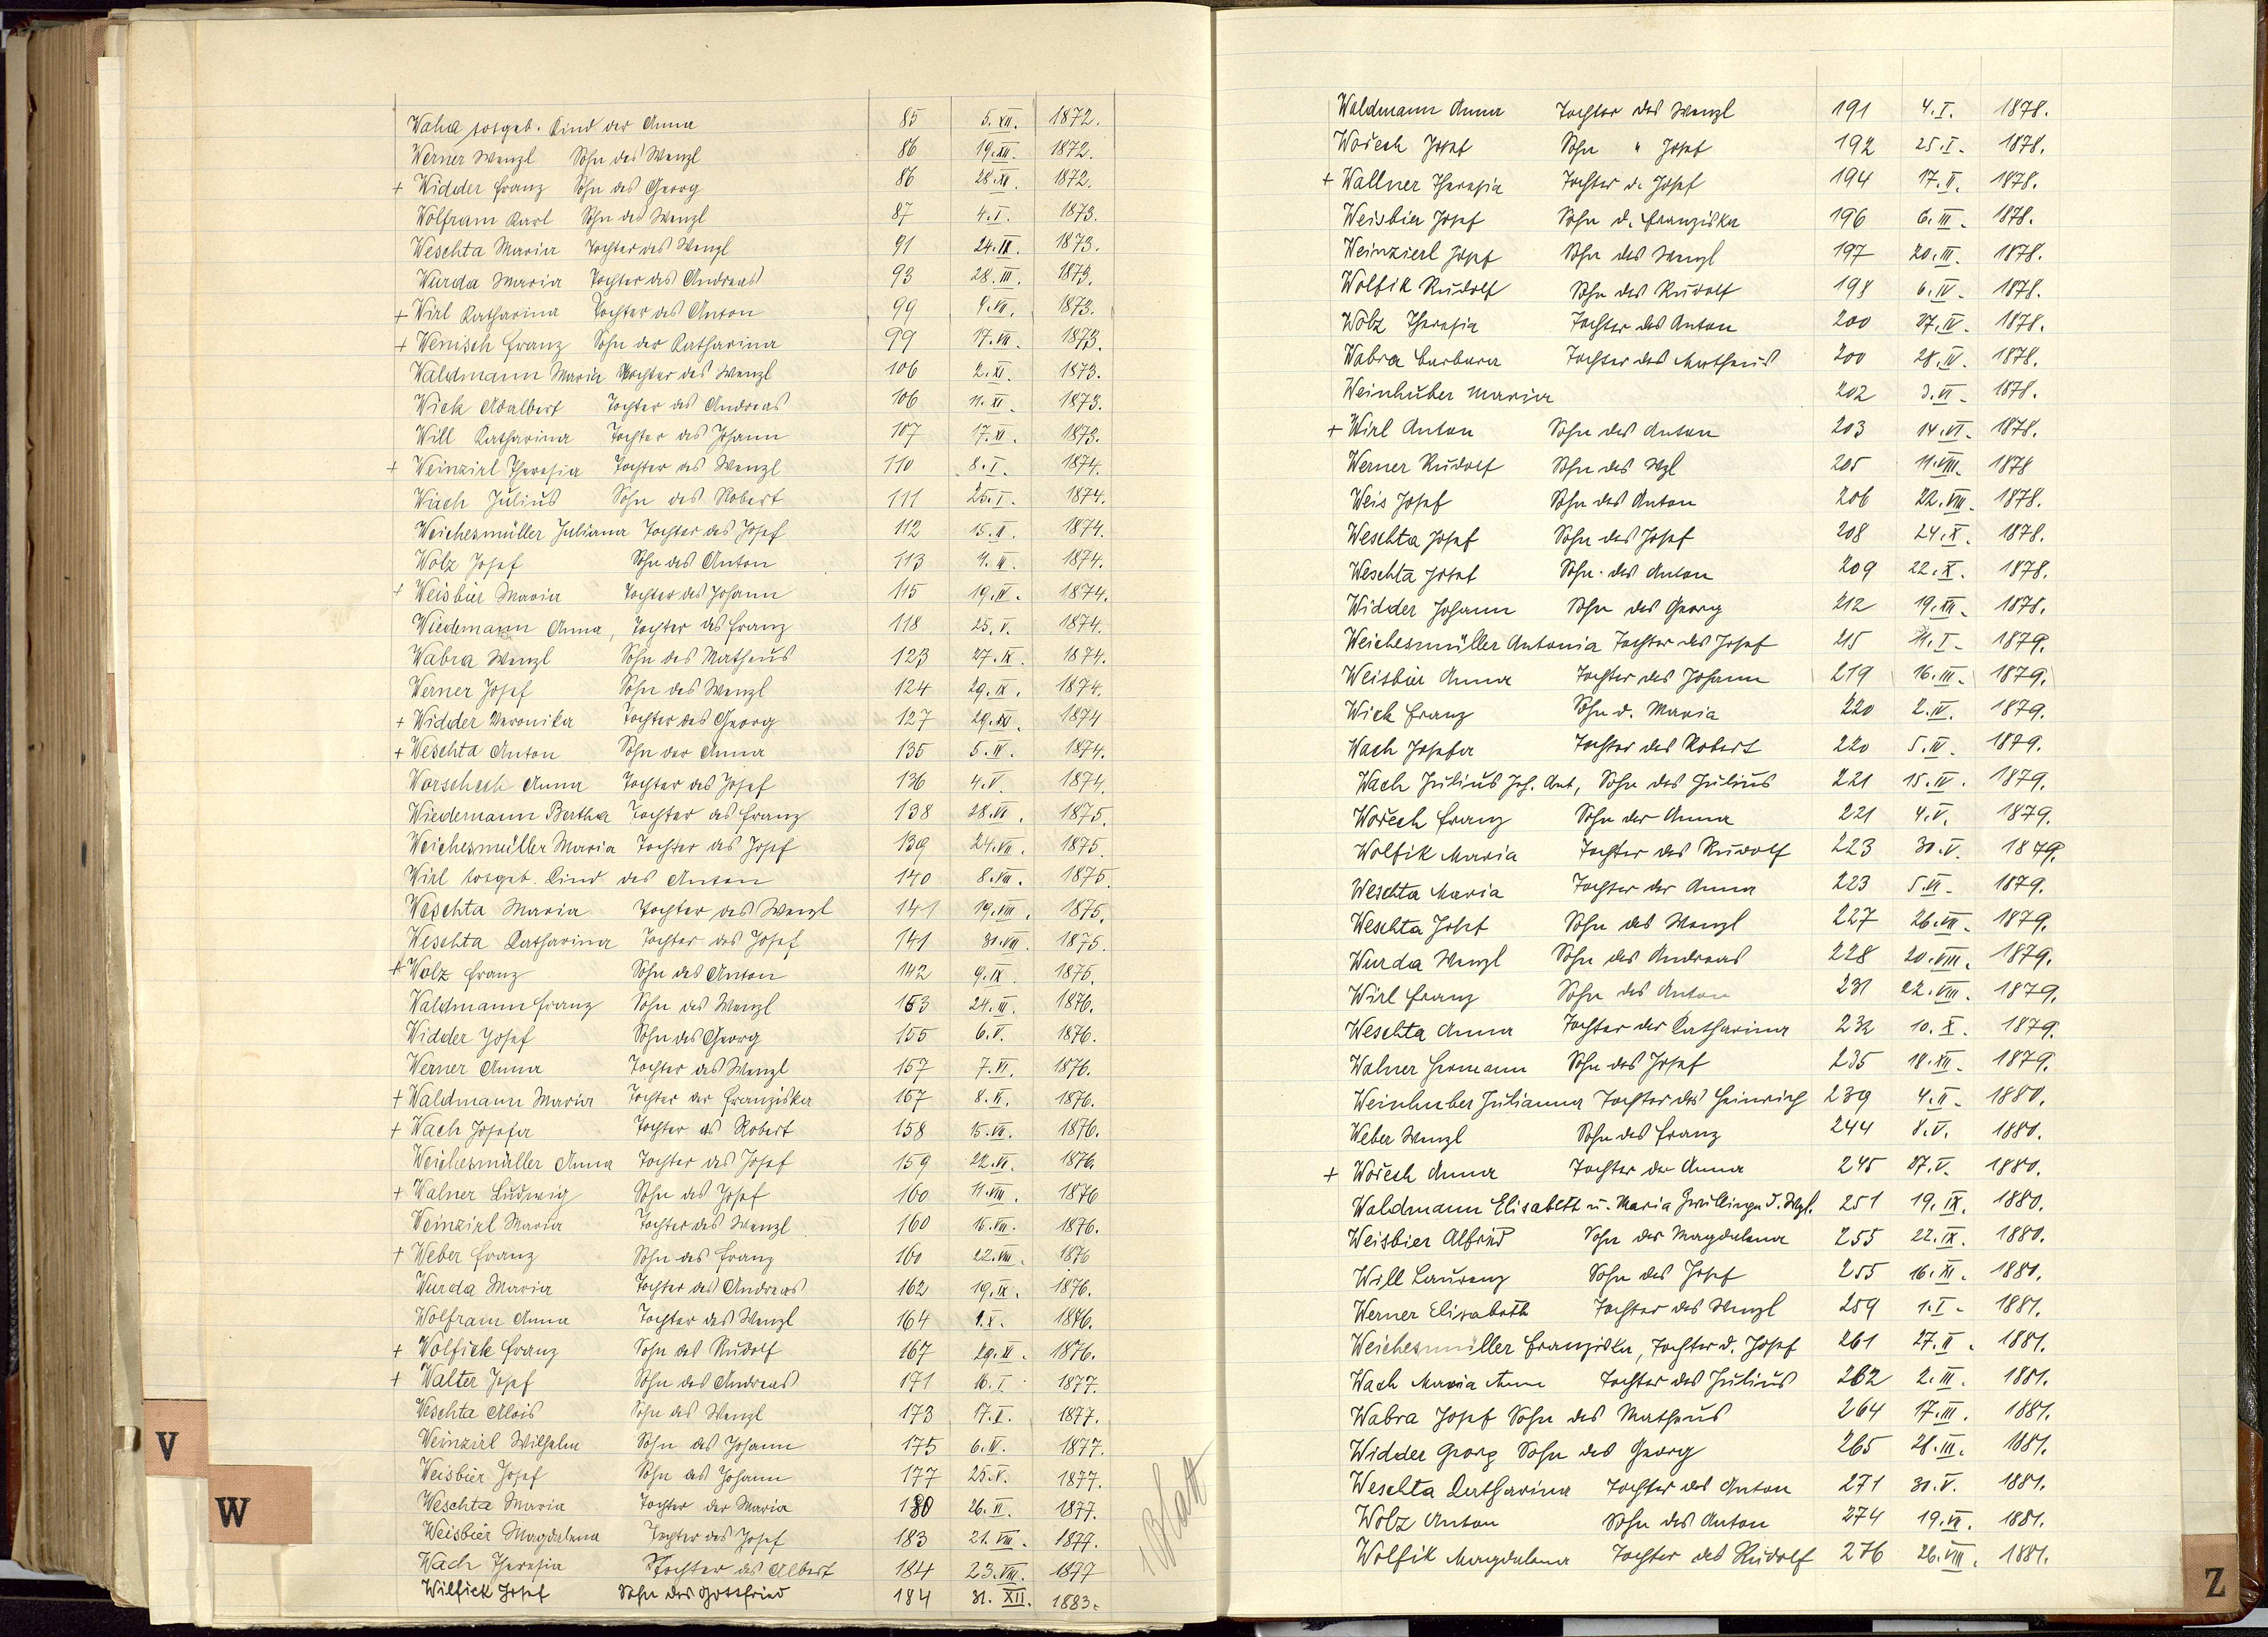 Waha totgeb. Kind der Anna 85 5.XII. 1872.
Werner Wenzl Sohn des Wenzl 86 19.XII. 1872.
+ Widder Franz Sohn des Georg 86 28.XI. 1872.
Wolfram Karl Sohn des Wenzl 87 4.I. 1873.
Weschta Maria Tochter des Wenzl 91 24.II. 1873.
Wurda Maria Tochter des Andreas 93 28.III. 1873.
+ Wirl Katharina Tochter des Anton 99 4.VII. 1873.
+ Wenisch Franz Sohn der Katharina 99 17.VII. 1873.
Waldmann Maria Tochter des Wenzl 106 2.XI. 1873.
Wick Adalbert Tochter des Andreas 106 11.XI. 1873.
Will Katharina Tochter des Johann 107 17.XI. 1873.
+ Weinzirl Theresia Tochter des Wenzl 110 8.I. 1874.
Wach Julius Sohn des Robert 111 25.I. 1874.
Weichesmüller Juliana Tochter des Josef 112 15.II. 1874.
Wolz Josef Sohn des Anton 113 1874.
+ Weisbier Maria Tochter des Johann 115 19.IV. 1874.
Wiedemann Anna, Tochter des Franz 118 25.V. 1874.
Wabra Wenzl Sohn des Matheus 123 27.IX. 1874.
Werner Josef Sohn des Wenzl 124 29.IX. 1874.
+ Widder Veronika Tochter des Georg 127 29.XI. 1874
+ Weschta Anton Sohn der Anna 135 5.IV. 1874.
Worschech Anna Tochter des Josef 136 4.V. 1874.
Wiedemann Bertha Tochter des Franz 138 28.VI. 1875.
Weichesmüller Maria Tochter des Josef 139 24.VII. 1875.
Wirl totgeb. Kind des Anton 140 8.VIII. 1875.
Weschta Maria Tochter des Wenzl 141 19.VIII. 1875.
Weschta Katharina Tochter des Josef 141 31.VIII. 1875.
+ Wolz Franz Sohn des Anton 142 9.IX. 1875.
Waldmann Franz Sohn des Wenzl 153 24.III. 1876.
Widder Josef Sohn des Georg 155 6.V. 1876.
Werner Anna Tochter des Wenzl 157 7.VI. 1876.
+ Waldmann Maria Tochter der Franziska 157 8.VI. 1876.
+ Wach Josefa Tochter des Robert 158 15.VI. 1876.
Weichesmüller Anna Tochter des Josef 159 22.VI. 1876.
+ Walner Ludwig Sohn des Josef 160 11.VIII. 1876
Weinzirl Maria Tochter des Wenzl 160 16.VIII. 1876.
+ Weber Franz Sohn des Franz 160 22.VIII. 1876
Wurda Maria Tochter des Andreas 162 19.IX. 1876.
Wolfram Anna Tochter des Wenzl 164 1.X. 1876.
+ Wolfick Franz Sohn des Rudolf 167 29.XI. 1876.
+ Walter Josef Sohn des Andreas 171 16.I. 1877.
Weschta Alois Sohn des Wenzl 173 17.II. 1877.
Weinzirl Wilhelm Sohn des Johann 175 6.IV. 1877.
Weisbier Josef Sohn des Johann 177 25.V. 1877.
Weschta Maria Tochter der Maria 180 26.VI. 1877.
Weisbier Magdalena Tochter des Josef 183 21.VIII. 1877.
Wach Theresia Tochter des Albert 184 23.VIII. 1877
Wilfick Josef Sohn des Gottfried 184 31.XII. 1883.
1 Blatt
V
W
Waldmann Anna Tochter des Wenzl 191 4.I. 1878.
Wořech Josef Sohn " Josef 192 25.I. 1878.
+ Wallner Theresia Tochter d. Josef 194 17.II. 1878.
Weisbier Josef Sohn d. Franziska 196 6.III. 1878.
Weinzierl Josef Sohn des Wenzl 197 20.III. 1878.
Wolfik Rudolf Sohn des Rudolf 198 6.IV. 1878.
Wolz Theresia Tochter des Anton 200 27.IV. 1878.
Wabra Barbara Tochter des Matheus 200 28.IV. 1878.
Weinhuber Maria 202 3.VI. 1878.
+ Wirl Anton Sohn des Anton 203 14.VI. 1878.
Werner Rudolf Sohn des Wzl 205 11.VIII. 1878
Weis Josef Sohn des Anton 206 22.VIII. 1878.
Weschta Josef Sohn des Josef 208 24.X. 1878.
Weschta Josef Sohn des Anton 209 22.X. 1878.
Widder Johann Sohn des Georg 212 19.XII. 1878.
Weichesmüller Antonia Tochter des Josef 215 11.I. 1879.
Weisbier Anna Tochter des Johann 219 16.III. 1879.
Wick Franz Sohn d. Maria 220 2.IV. 1879.
Wach Josefa Tochter des Robert 220 5.IV. 1879.
Wach Julius Joh. Ant, Sohn des Julius 221 15.IV. 1879.
Wořech Franz Sohn der Anna 221 4.V. 1879.
Wolfik Maria Tochter des Rudolf 223 30.V. 1879.
Weschta Maria Tochter der Anna 223 5.VI. 1879.
Weschta Josef Sohn des Wenzl 227 26.VII. 1879.
Wurda Wenzl Sohn des Andreas 228 20.VIII. 1879.
Wirl Franz Sohn des Anton 231 22.VIII. 1879.
Weschta Anna Tochter der Katharina 232 10.X. 1879.
Walner Hermann Sohn des Josef 235 18.XII. 1879.
Weinhuber Julianna Tochter des Heinrich 239 4.II. 1880.
Weber Wenzl Sohn des Franz 244 8.V. 1880.
+ Wořech Anna Tochter der Anna 245 27.V. 1880.
Waldmann Elisabeth u. Maria Zwillinge d. Wzl. 251 19.IX. 1880.
Weisbier Alfred Sohn der Magdalena 255 22.IX. 1880.
Will Laurenz Sohn des Josef 255 16.XI. 1880.
Werner Elisabeth Tochter des Wenzl 259 1.I. 1881.
Weichesmüller Franziska, Tochter d. Josef 261 27.II. 1881.
Wach Maria Anna Tochter des Julius 262 2.III. 1881.
Wabra Josef Sohn des Matheus 264 17.III. 1881.
Widder Georg Sohn des Georg 265 28.III. 1881.
Weschta Katharina Tochter des Anton 271 30.V. 1881.
Wolz Anton Sohn des Anton 274 19.VI. 1881.
Wolfik Magdalena Tochter des Rudolf 276 26.VIII. 1881.
Z